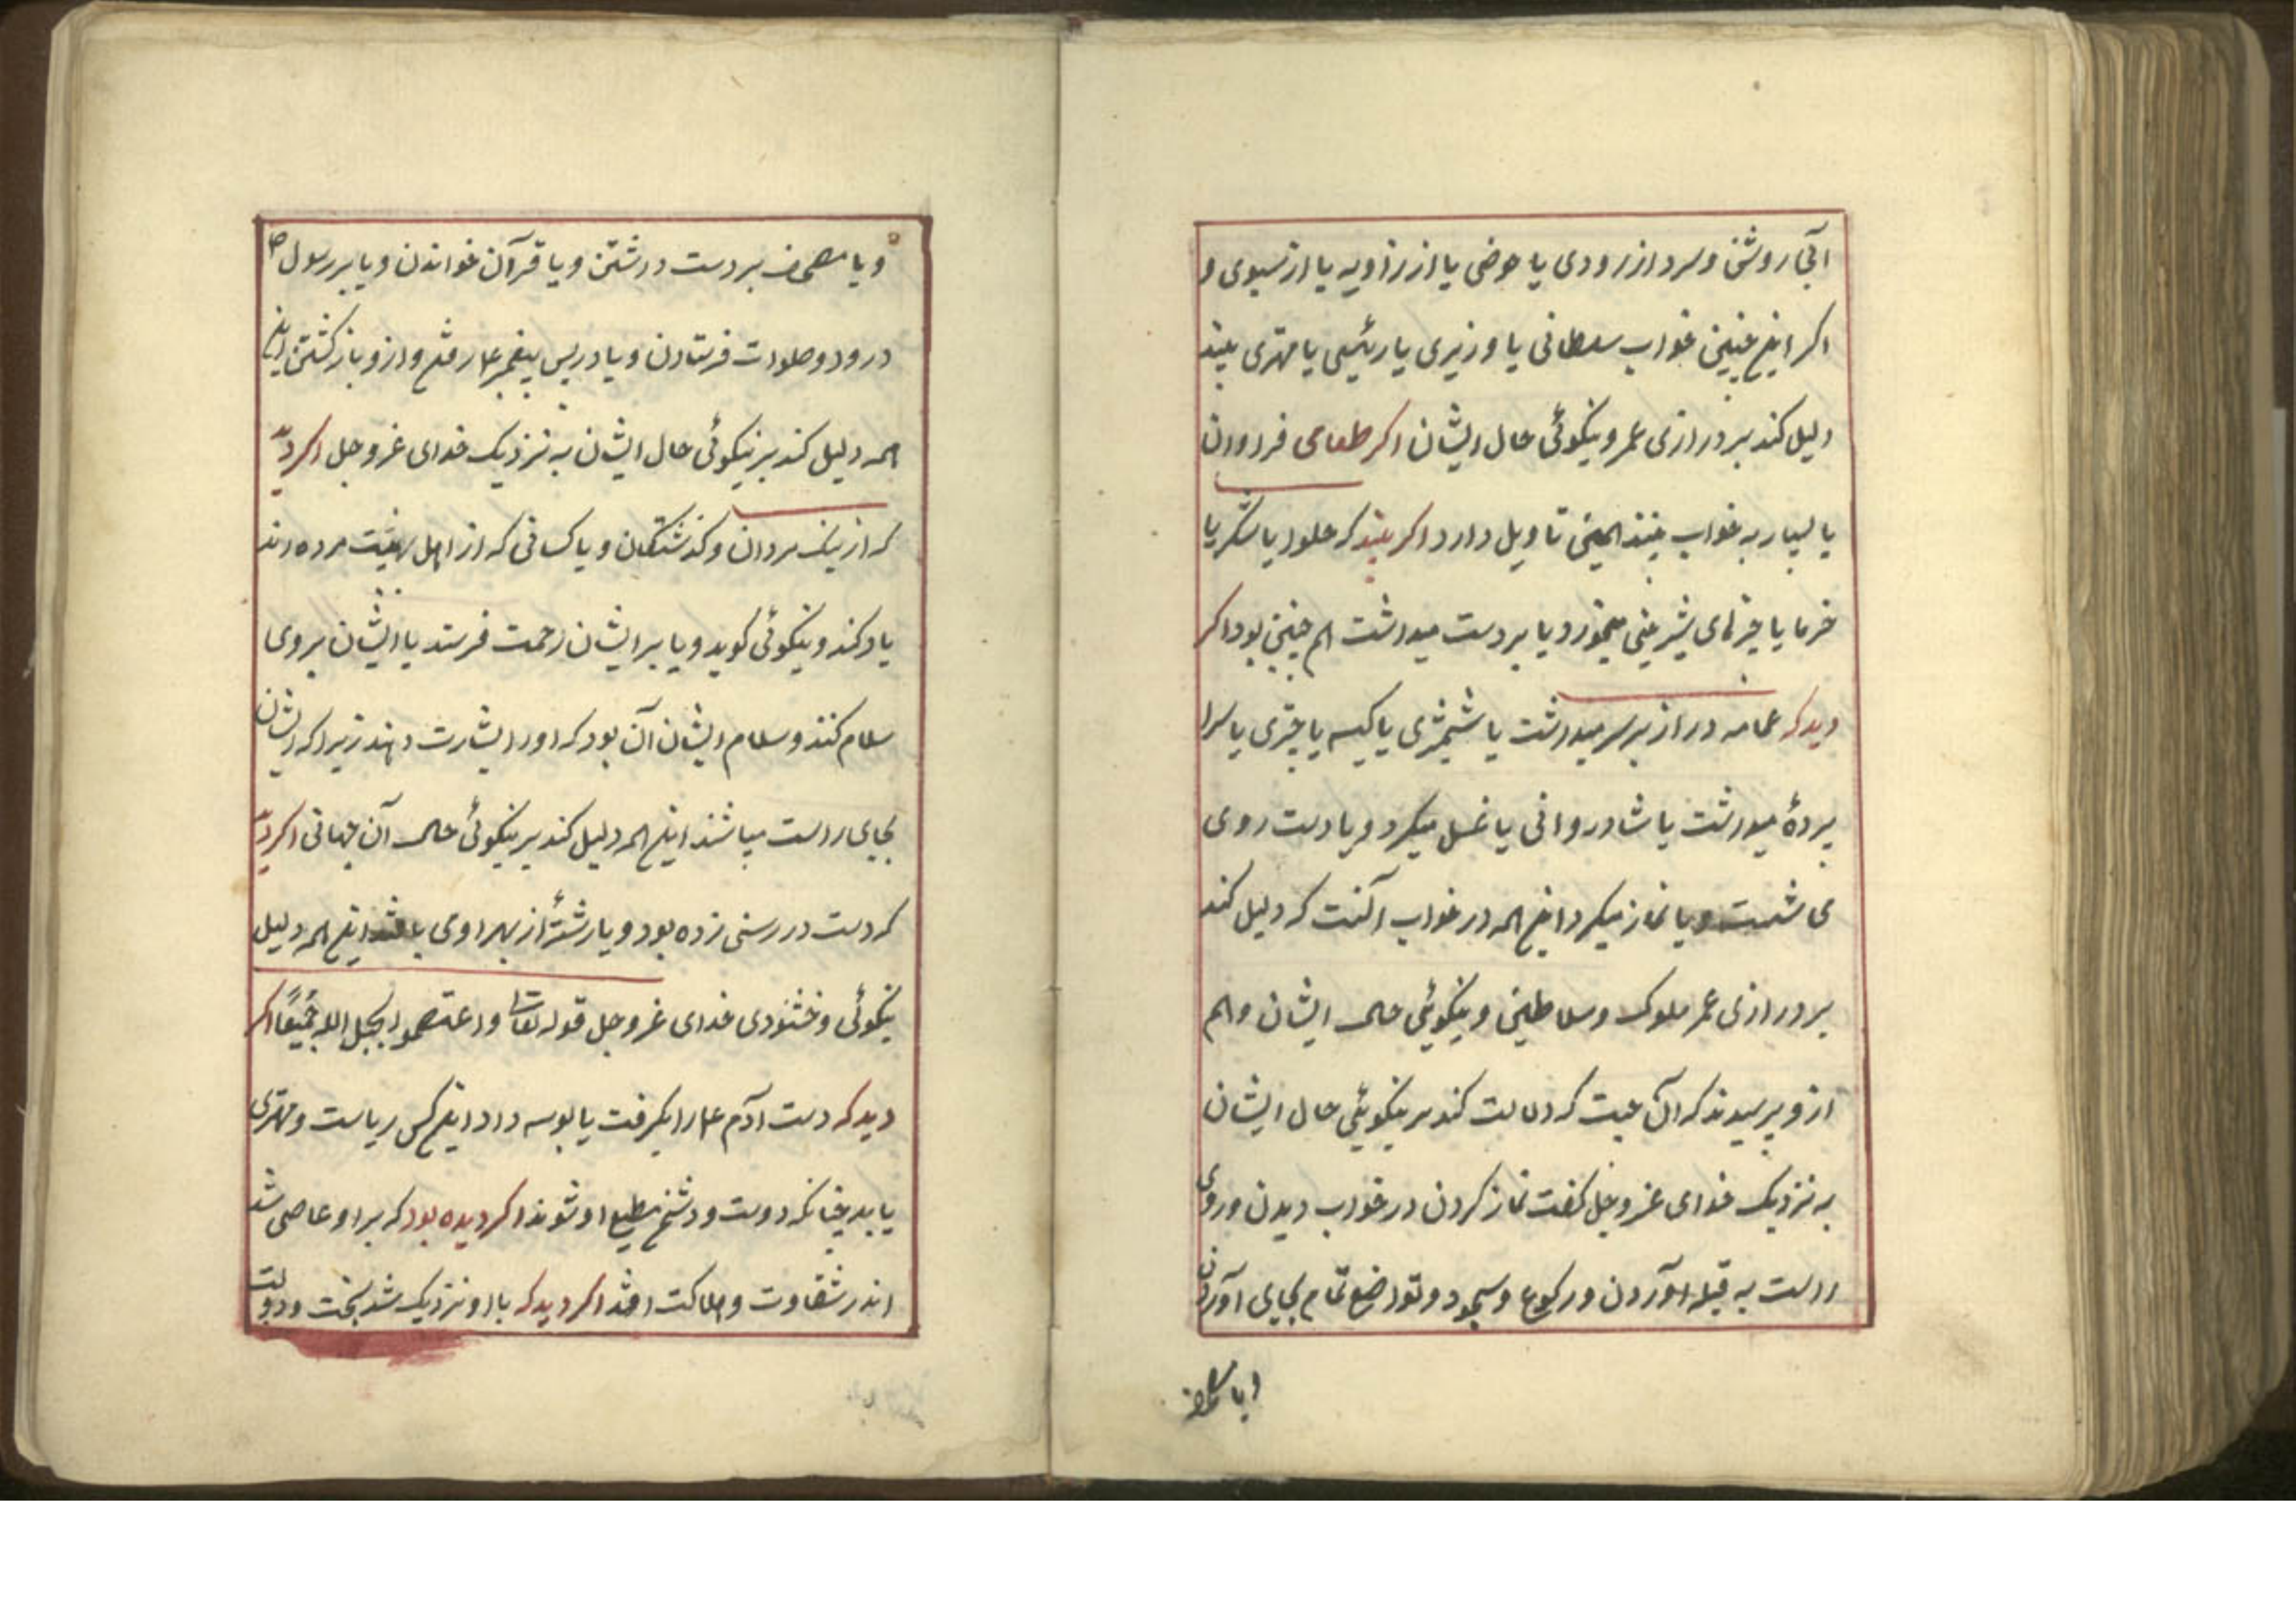 آبی روشن و سرد از رودی یا حوضی یا از زاویه یا از سبوی و
اکر اینچنین خواب سلطانی یا وزیری یا رئیسی یا مهتری بیند
دلیل کند بر درازی عمر و نیکوئی حال ایشان اکر طعامی فراوان
یا بسیار به خواب بیند همین تاویل دارد اکر بیند که حلوا یا شکر یا
خرما یا چیزهای شیرینی میخورد یا بر دست میداشت هم چنین بود اکر
دید که عمامه دراز بر سر میداشت یا شمشیری یا کیسه یا چتری یا سرا
پردهٔ میداشت یا شادروانی یا غسل میکرد و یا دست روی
می شست و یا نماز میکرد اینهمه در خواب آنست که دلیل کند
بر درازی عمر ملوک و سلاطین و نیکوئی حال ایشان و هم
ازو پرسیدند که آن چیست که دلالت کند بر نیکوئی حال ایشان
به نزدیک خدای عز و جل کفت نماز کردن در خواب دیدن و روی
راست به قبله آوردن و رکوع و سجود و تواضع تمام بجای آوردن
و یا مصحف
و یا مصحف بر دست داشتن و یا قرآن خواندن و یا بر رسول ص
درود و صلوات فرستادن و یا در پس پیغمبر ع رفتن و ازو باز کشتن این
همه دلیل کند بر نیکوئی حال ایشان به نزدیک خدای عز و جل اکر دید
که از نیک مردان و کذشتکان و یا کسانی که از اهل بهشت مرده اند
یاد کند و نیکوئی کوید و یا بر ایشان رحمت فرستد یا ایشان بروی
سلام کنند و سلام ایشان آن بود که او را بشارت دهند زیرا که ایشان
بجای راست میباشند اینهمه دلیل کند بر نیکوئی حال آن جهانی اکر دید
که دست در رسنی زده بود و یا رشتهٔ از بهر او می بافتند اینهمه دلیل
نیکوئی و خشنودی خدای عز و جل قوله تعالی واعتصموا بحبل الله جمیعًا اکر
دید که دست آدم ع را بگرفت یا بوسه داد اینکس ریاست و مهتری
یابد چنانکه دوست و دشمن مطیع او شوند اکر دیده بود که بر او عاصی شد
اندر شقاوت و هلاکت افتد اکر دید که با او نزدیک شد بخت و دولت